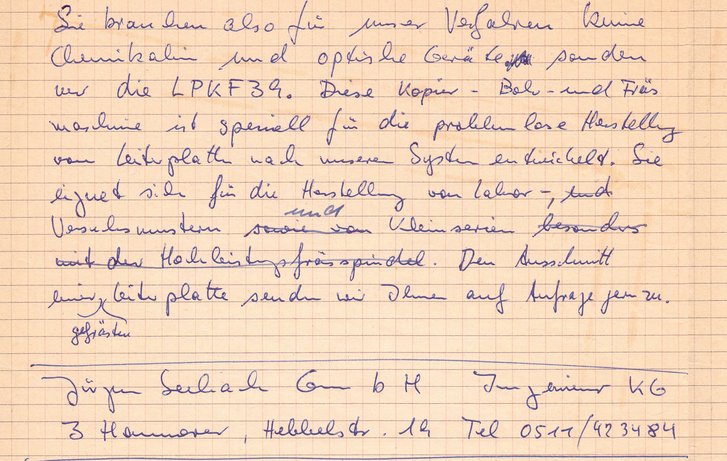 Sie brauchen also für unser Verfahren keine
Chemikalien und optische Geräte sondern
nur die LPKF 39. Diese Kopier- Bohr- und Fräs
maschine ist speziell für die problemlose Herstellung
von Leiterplatten nach unserem System entwickelt. Sie
eignet sich für die Herstellung von Labor-, und
und
Versuchsmustern sowie von Kleinserien besonders
mit der Hochleistungsfrässpindel. Den Ausschnitt
einer Leiterplatte senden wir Ihnen auf Anfrage gern zu.
gefrästen
Jürgen Seebach GmbH Ingenieur KG
3 Hannover, Hebbelstr. Tel 0511/423484